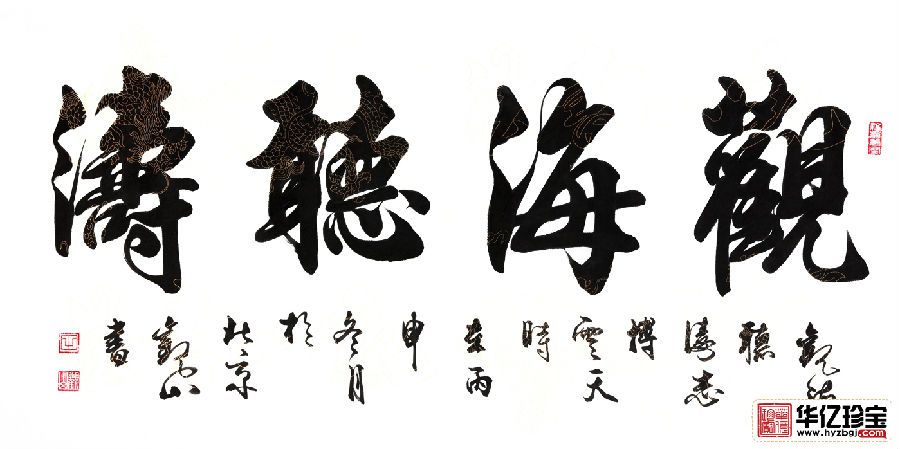 觀海聽濤
觀海
聽
濤志
搏
雲天
時
丙
申
冬月
於
北京
山
書
华亿珍宝
www.hyzbgj.com